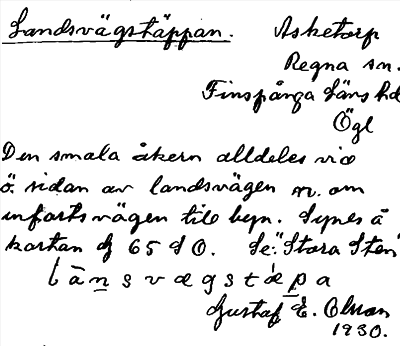 Landsvägstäppan. Asketorp
Regna sn.
Finspånga läns hd
Ögl
Den smala åkern alldeles vid
ö. sidan av landsvägen m. om
infartsvägen till byn. Synes å
kartan ej 65 SO. Se: "Stora Sten"
lànsvægstæpa
Gustaf E. Olsson
1930.